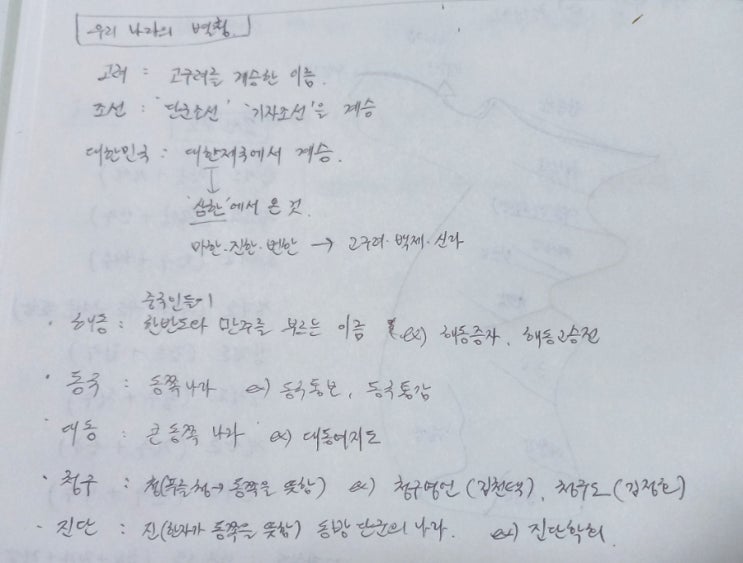 우리 나라의 별칭.
고려 : 고구려를 계승한 이름.
조선 : '단군조선' '기자조선'을 계승
대한민국 : 대한제국에서 계승.
'삼한'에서 온 것.
마한·진한·변한 → 고구려·백제·신라
중국인들이
· 해동 : 한반도와 만주를 부르는 이름 ex) 해동증자, 해동고승전
· 동국 : 동쪽나라 ex) 동국통보, 동국통감
· 대동 : 큰 동쪽 나라 ex) 대동여지도
· 청구 : 청(푸를청→ 동쪽을 뜻함) ex) 청구영언 (김천택), 청구도 (김정호)
· 진단 : 진(한자가 동쪽을 뜻함) 동방 단군의 나라. ex) 진단학회.